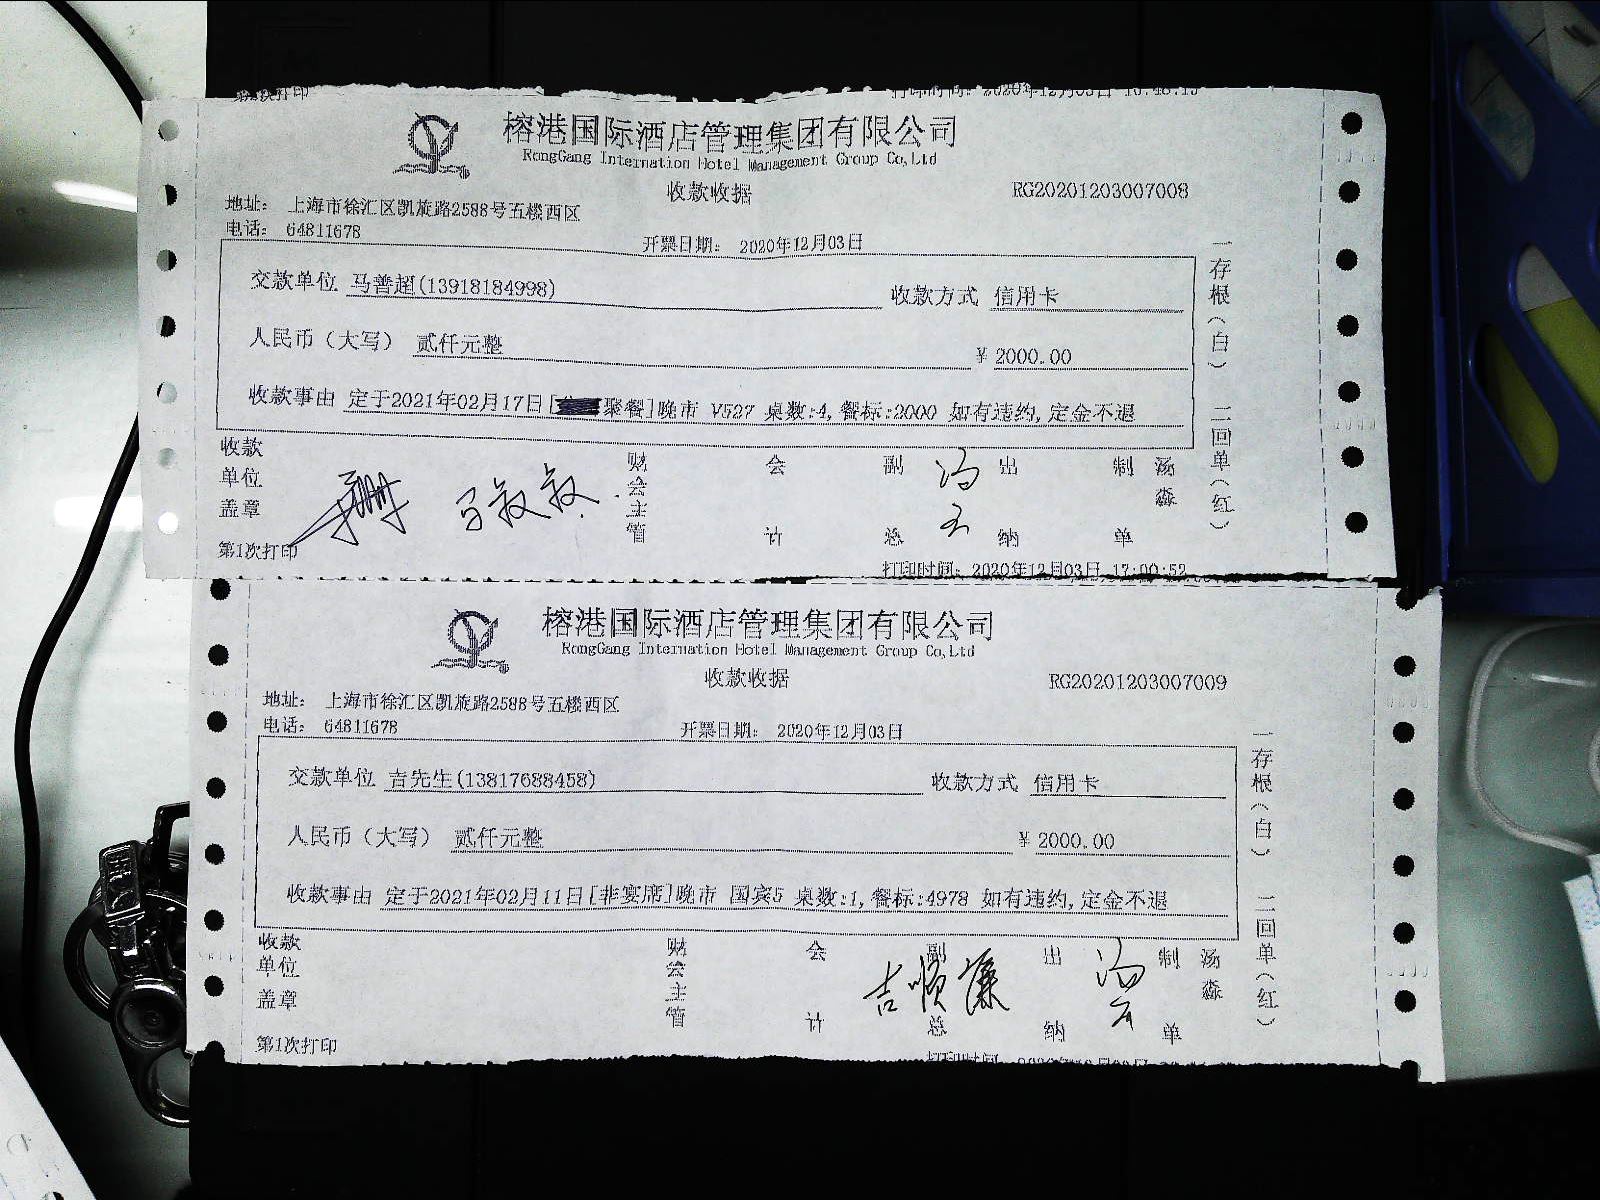 第1次打印
打印时间：2020年12月03日 16:48:15
榕港国际酒店管理集团有限公司
RongGang Internation Hotel Management Group Co,Ltd
收款收据
RG20201203007008
地址： 上海市徐汇区凯旋路2588号五楼西区
电话： 64811678
开票日期： 2020年12月03日
交款单位 马善超(13918184998) 收款方式 信用卡
人民币（大写） 贰仟元整 ¥ 2000.00
收款事由 定于2021年02月17日[聚餐]晚市 V527 桌数:4,餐标:2000 如有违约,定金不退
一存根（白） 二回单（红）
收款单位盖章 财会主管 会计 副总 出纳 制单 汤淼
第1次打印
打印时间：2020年12月03日 17:00:52
榕港国际酒店管理集团有限公司
RongGang Internation Hotel Management Group Co,Ltd
收款收据
RG20201203007009
地址： 上海市徐汇区凯旋路2588号五楼西区
电话： 64811678
开票日期： 2020年12月03日
交款单位 吉先生(13817688458) 收款方式 信用卡
人民币（大写） 贰仟元整 ¥ 2000.00
收款事由 定于2021年02月11日[非宴席]晚市 国宾5 桌数:1,餐标:4978 如有违约,定金不退
一存根（白） 二回单（红）
收款单位盖章 财会主管 会计 副总 出纳 制单 汤淼
吉顺濂
第1次打印
打印时间